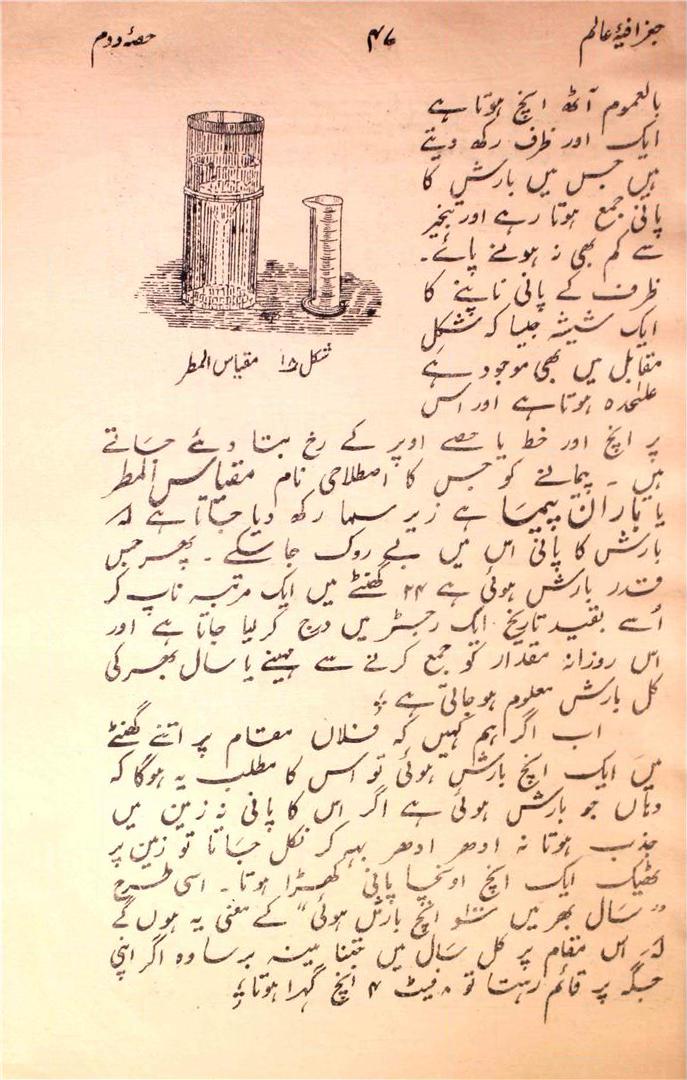 جغرافیۂ عالم ۴۷ حصۂ دوم
بالعموم آٹھ انچ ہوتا ہے
ایک اور ظرف رکھ دیتے
ہیں جس میں بارش کا
پانی جمع ہوتا رہے اور تبخیر
سے کم بھی نہ ہونے پائے۔
ظرف کے پانی ناپنے کا
ایک شیشہ جیسا کہ شکل
مقابل میں بھی موجود ہے
علٰحدہ ہوتا ہے اور اس
شکل ۱۸ مقیاس المطر
پر انچ اور خط یا حصے اوپر کے رخ بتا دئے جاتے
ہیں ۔ پیمانے کو جس کا اصطلاحی نام مقیاس المطر
یا باران پیما ہے زیر سما رکھ دیا جاتا ہے کہ
بارش کا پانی اس میں بے روک جا سکے ۔ پھر جس
قدر بارش ہوئی ہے ۲۴ گھنٹے میں ایک مرتبہ ناپ کر
اُسے بقید تاریخ ایک رجسٹر میں درج کر لیا جاتا ہے اور
اس روزانہ مقدار کو جمع کرنے سے مہینے یا سال بھر کی
کل بارش معلوم ہو جاتی ہے ؛
اب اگر ہم کہیں کہ فلاں مقام پر اتنے گھنٹے
میں ایک انچ بارش ہوئی تو اس کا مطلب یہ ہوگا کہ
وہاں جو بارش ہوئی ہے اگر اس کا پانی نہ زمین میں
جذب ہوتا نہ ادھر ادھر بہہ کر نکل جاتا تو زمین پر
ٹھیک ایک انچ اونچا پانی کھڑا ہوتا ۔ اسی طرح
"سال بھر میں سو انچ بارش ہوئی" کے معنی یہ ہوں گے
کہ اس مقام پر کل سال میں جتنا مینہ برسا وہ اگر اپنی
جگہ پر قائم رہتا تو ۸ فیٹ ۴ انچ گہرا ہوتا ؛